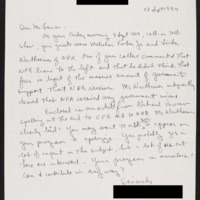 12 Sept 1994
Dear Mr Lamb -
On your Friday morning 9 Sept 1994, call in show
when you guests were Malcolm Forbes Jr and Linda
Wertheimer of NPR. One of your callers commented that
NPR leans to the left and that he didn't think that
was in light of the massive amount of government
support that NPR receives. Ms Wertheimer indignantly
denied that NPR received any government money.
Enclosed is an article from Richard
spelling out the aid to CPB and to NPR. Ms Wertheimer
clearly lied! You may want to ask to appear on
your program to apologize. You probably get a
lot of request on this subject, but a lot of us out
here are interested. Your program is marvelous!
Can I contribute in any way?
Sincerely